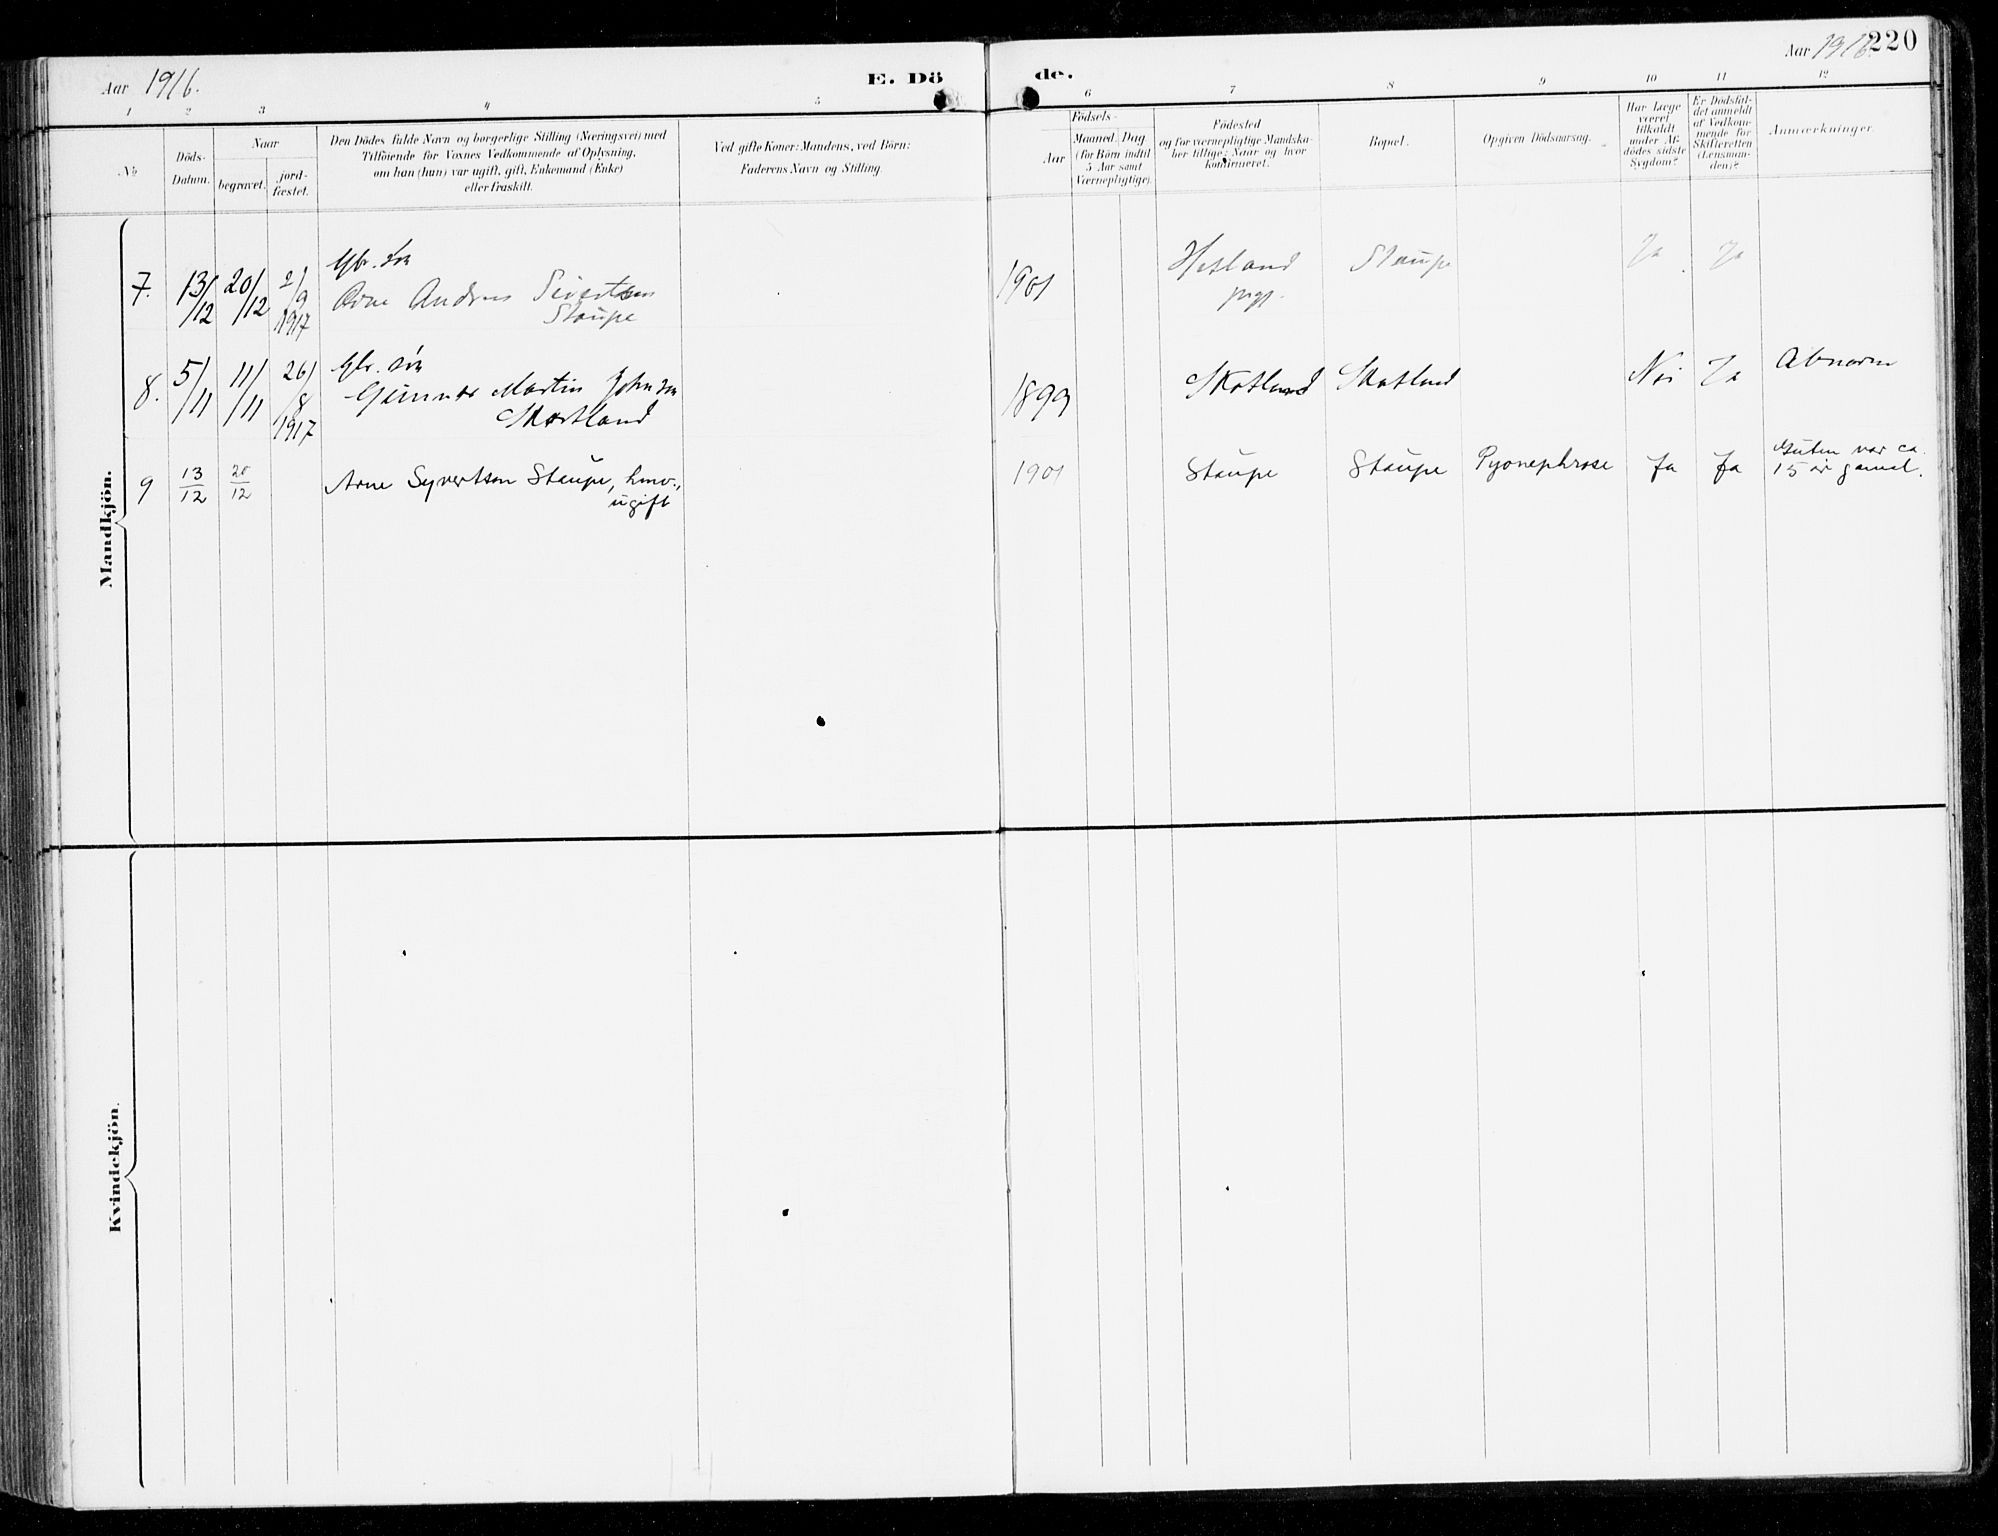 Aar 1916.
E. Dö de.
Aar 1916 220
1 2 3 4 5 6 7 8 9 10 11 12
№
Döds-
Datum.
Naar
begravet.
jord-
fæstet.
Den Dödes fulde Navn og borgerlige Stilling (Næringsvei) med
Tilföiende for Voxnes Vedkommende af Oplysning,
om han (hun) var ugift, gift, Enkemand (Enke)
eller fraskilt.
Ved gifte Koner: Mandens, ved Börn:
Faderens Navn og Stilling.
Födsels-
Aar
Maaned. Dag
(for Börn indtil
5 Aar samt
Værnepligtige).
Födested
og for værnepligtige Mandska-
ber tillige: Naar og hvor
konfirmeret.
Bopæl.
Opgiven Dödsaarsag.
Har Læge
været
tilkaldt
under Af-
dödes sidste
Sygdom?
Er Dödsfal-
det anmeldt
af Vedkom-
mende for
Skifteretten
(Lensman-
den)?
Anmærkninger.
Mandkjön.
7. 13/12 20/12 2/9 1917
Gbr. søn
Arne Andreas Sivertsen
Staupe
1901
Hesland
Staupe
Ja Ja
8. 5/11 11/11 26/8 1917
Gbr. søn
Gunnar Martin Johnsen
Skotland
1899 Skotland Skotland Nei Ja Abnorm
9 13/12 20/12 Arne Syvertson Staupe,
ugift
1901 Staupe Staupe Pyonephrose Ja Ja
Guten var ca.
15 år gamal.
Kvindekjön.